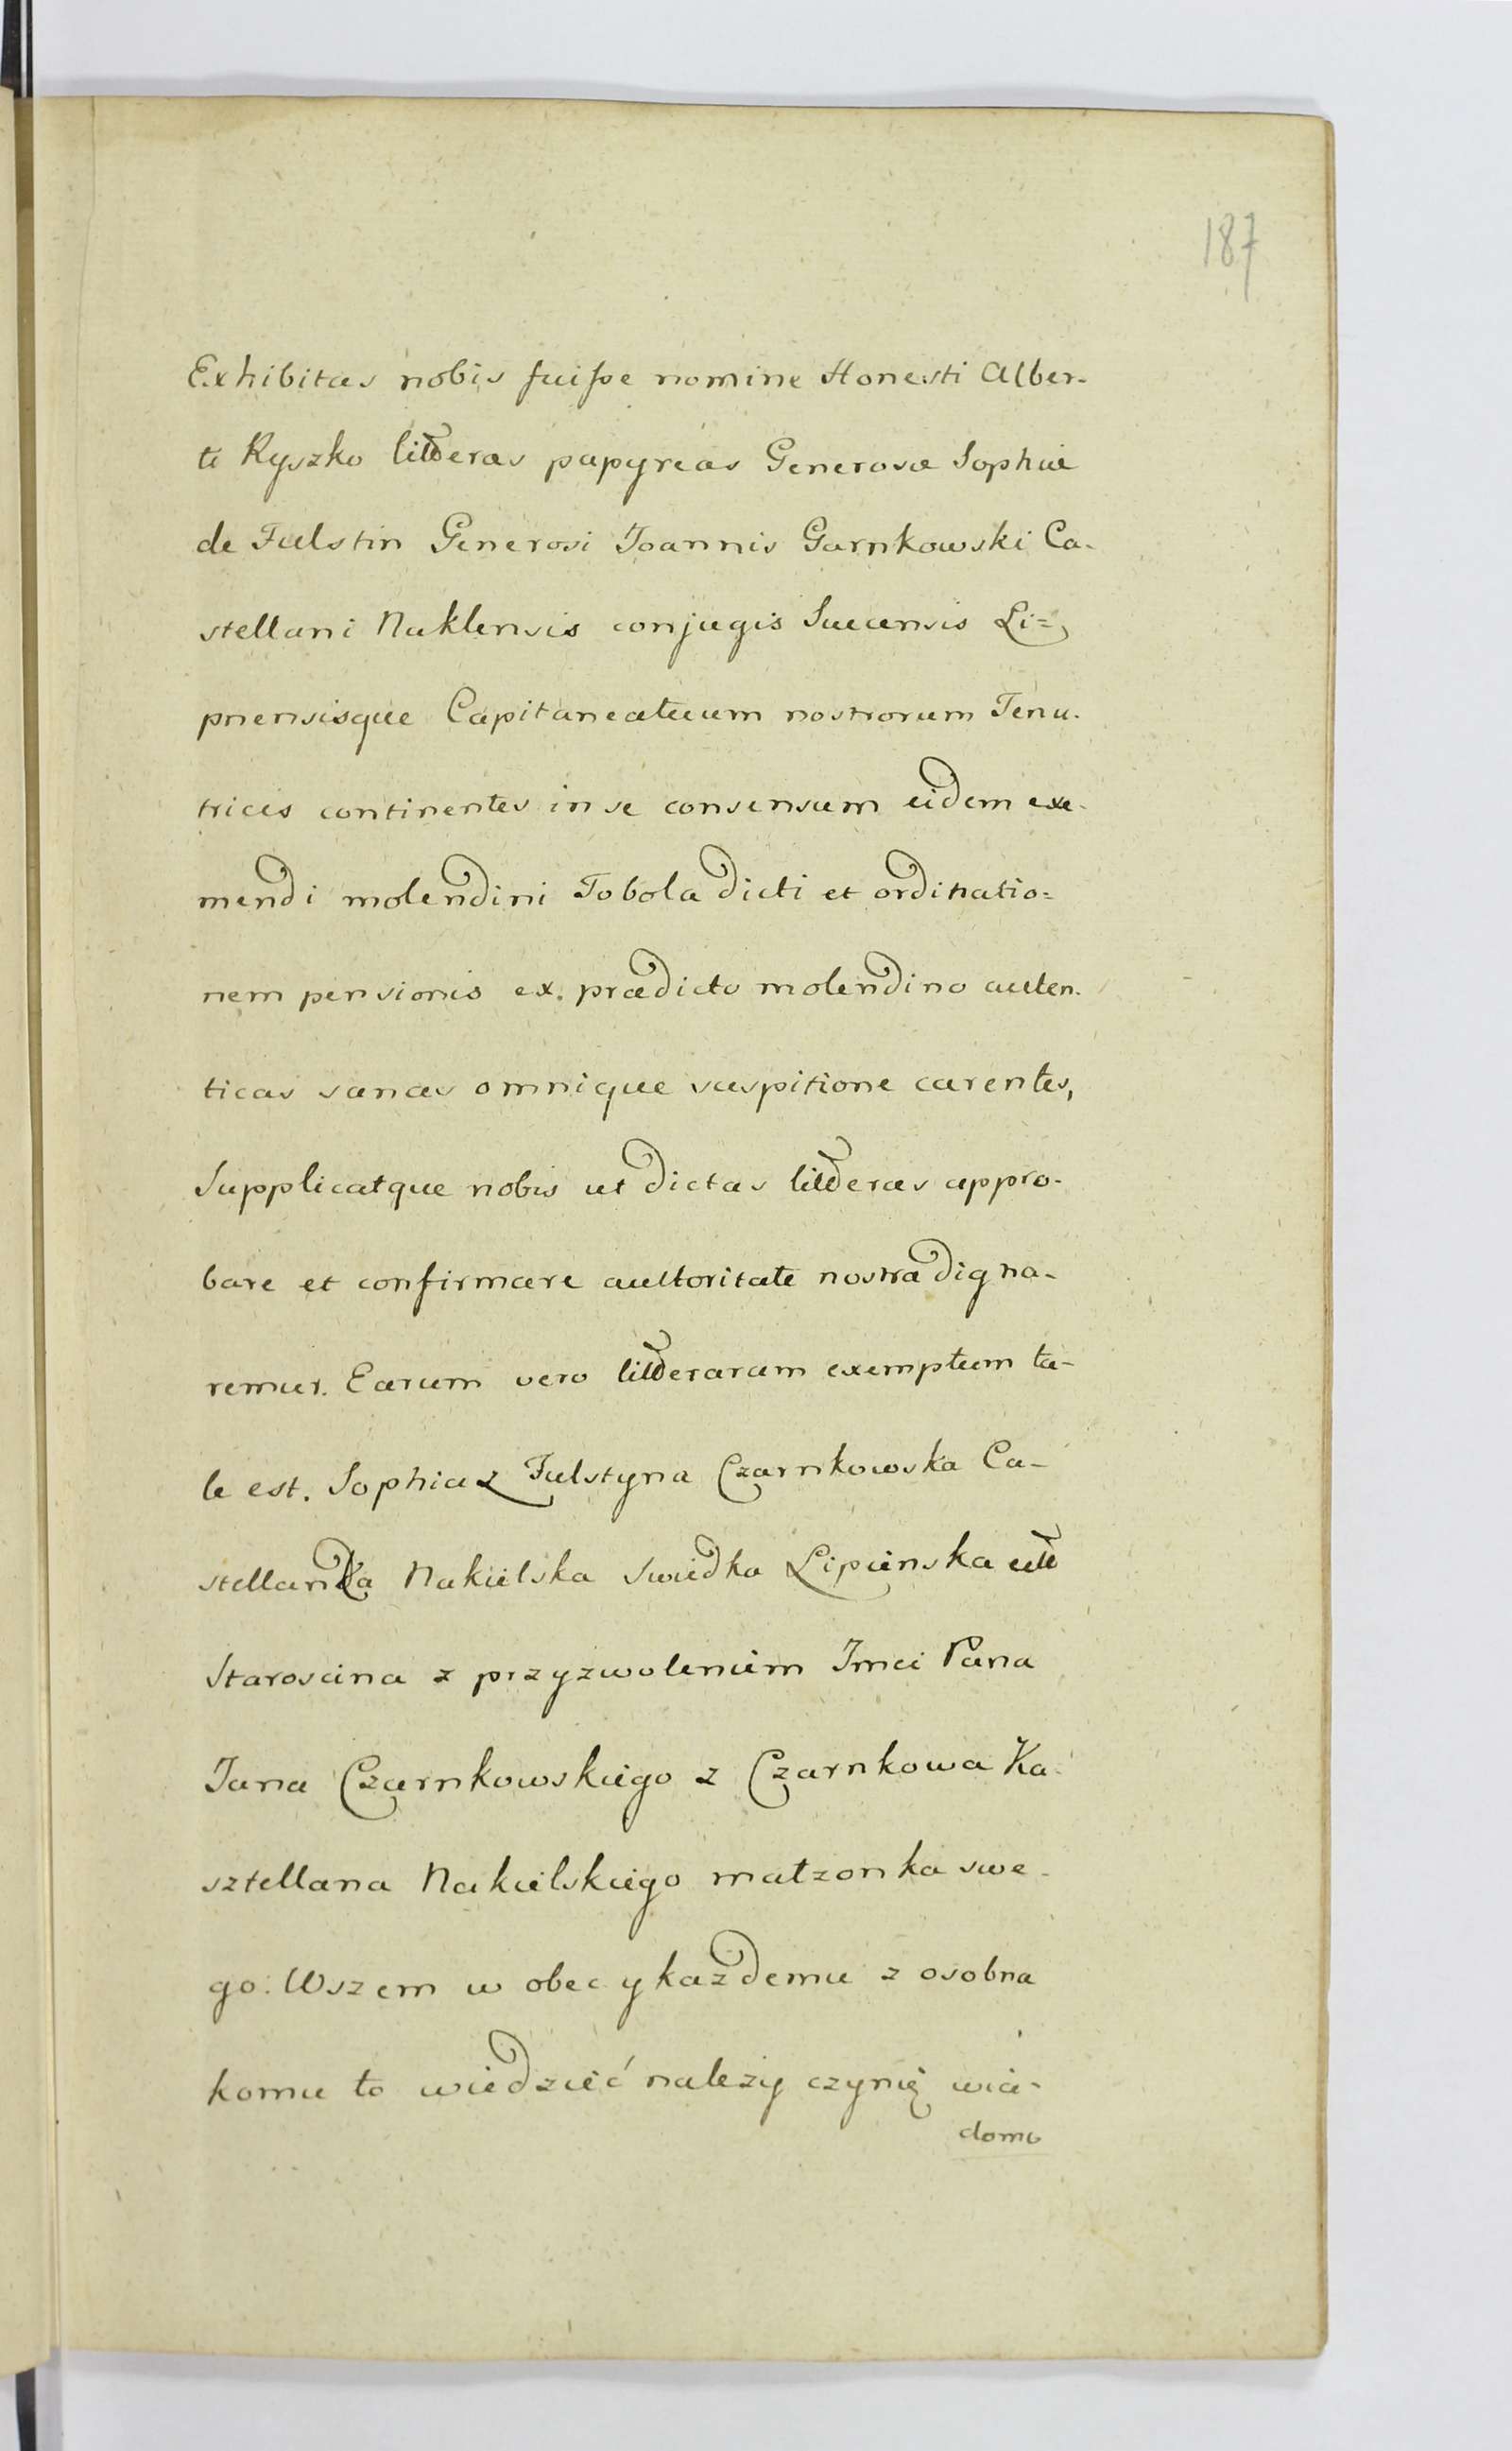 187
Exhibitas nobis fuisse nomine Honesti Alber-
ti Ryszko litteras papyreas Generosæ Sophiæ
de Fulstin Generosi Joannis Garnkowski Ca-
stellani Naklensis conjugis Suecensis Li=
pnensisque Capitaneatuum nostrorum Tenu-
tricis continentes in se consensum eidem exe-
mendi molendini Tobola dicti et ordinatio=
nem pensionis ex. prædicto molendino auten-
ticas sanas omnique suspitione carentes,
Supplicatque nobis ut dictas litteras appro-
bare et confirmare authoritate nostra digna-
remur. Earum vero litterarum exemplum ta-
le est. Sophia z Fulstyna Czarnkowska Ca-
stellanka Nakielska Swiedka Lipienska ett
Staroscina z przyzwoleniem Jmci Pana
Jana Czarnkowskiego z Czarnkowa Ka-
sztellana Nakielskiego małzonka swe-
go. Wszem w obec y kazdemu z osobna
komu to wiedzieć nalezy czynię wia-
domo